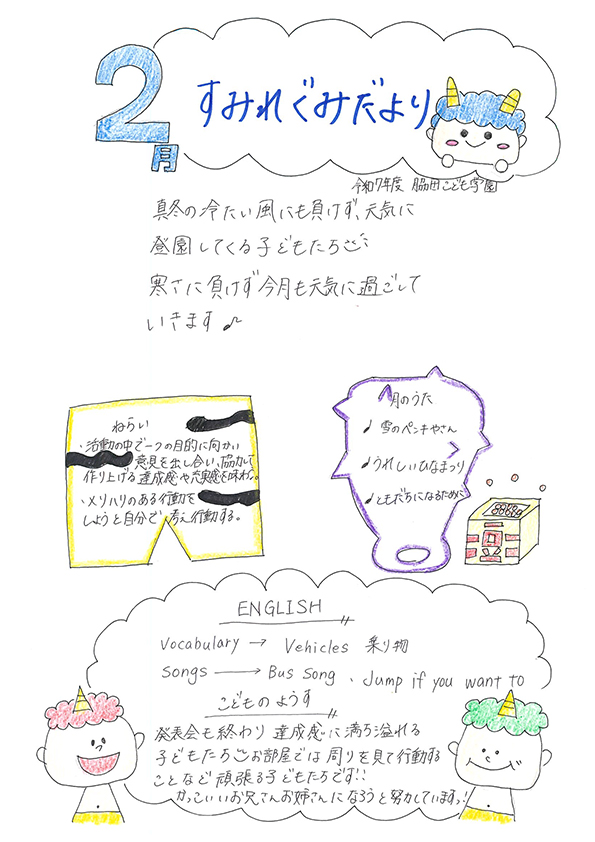 2月
すみれぐみだより
令和7年度 脇田こども学園
真冬の冷たい風にも負けず、元気に
登園してくる子どもたち
寒さに負けず今月も元気に過ごして
いきます♪
ねらい
・活動の中で一つの目的に向かい
意見を出し合い、協力して
作り上げる達成感や充実感を味わう。
・メリハリのある行動を
しようと自分で考え行動する。
月のうた
♪ 雪のペンキやさん
♪うれしいひなまつり
♪ともだちになるために
ENGLISH
Vocabulary → Vehicles 乗り物
Songs → Bus Song 、Jump if you want to
こどものようす
発表会も終わり達成感に満ち溢れる
子どもたち お部屋では周りを見て行動する
ことなど頑張る子どもたちです!!
かっこいいお兄さんお姉さんになろうと努力しています!